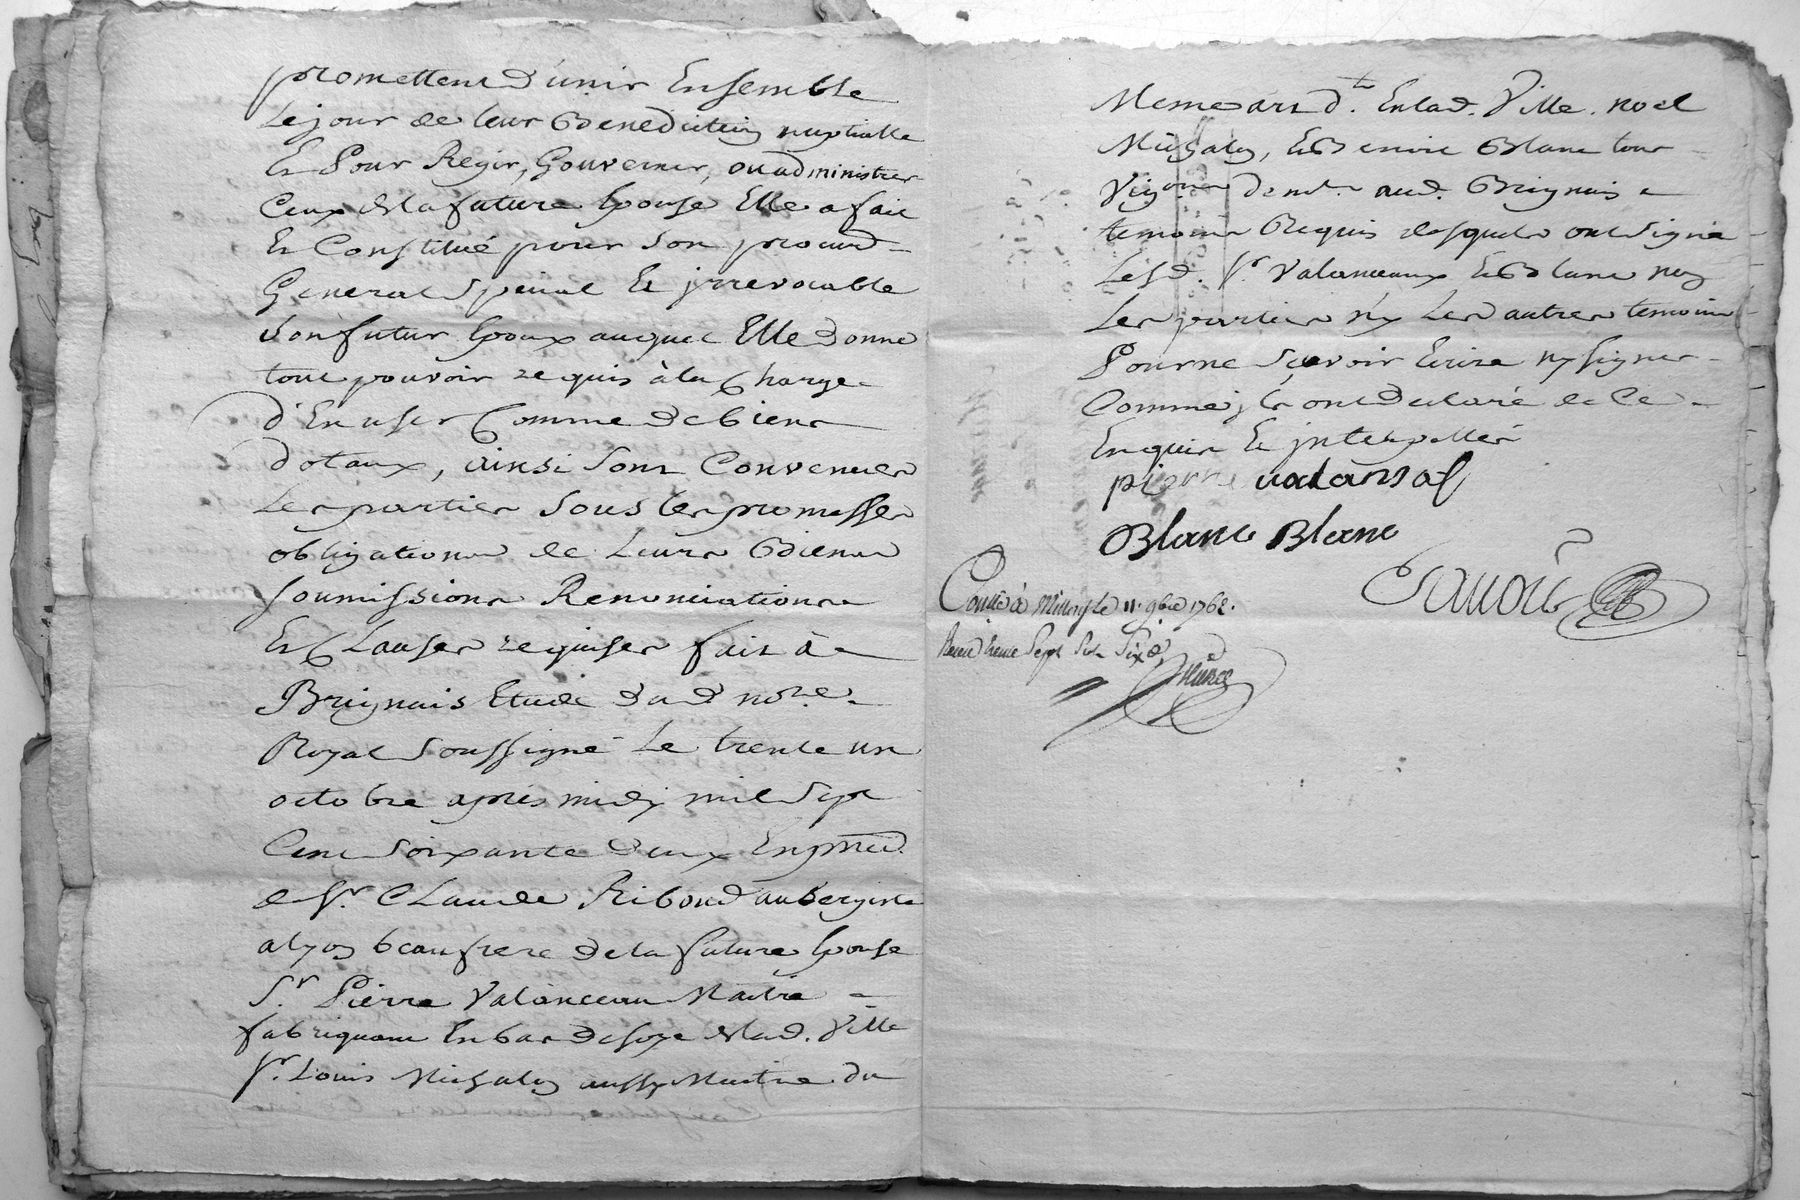 promettent d'unir Ensemble
Le jour de leur Benediction nuptialle
Et Pour Regir, Gouverner, ou administrer
Ceux de la future Epouse Elle a fait
Et Constitué pour Son procur.
General Special Et jrrevocable
Son futur Epoux auquel Elle donne
tout pouvoir requis à la Charge
d'En user Comme de biens
dotaux, ainsi Sont Convenues
Les parties Sous les promesses
obligations de Leurs Biens
soumissions Renonciations
Et Clauses requises fait à
Brignais Etude dud. no.re
Royal Soussigné Le trente un
octobre après midy mil Sept
Cent Soixante deux En prea.
de Sr. CLaude Riboud aubergiste
a lyon beaufrere de la future Epouse
Sr. Pierre Valanceau Maitre
fabriquant En bas de soye de lad. Ville
Sr. Louis Michalon aussy Maitre du
Meme art d.t En lad. Ville. noel
Michalon, Et Benoit Blanc tous
Vignerons dem.t aud. Brignais
temoins Requis desquels ont Signé
Lesd. Sr. Valanceaux Et Blanc non
Les parties ny Les autres temoins
Pour ne Sçavoir Ecrire ny signer
Comme jls ont declaré de Ce
Enquis Et jnterpellés
pierre valansol
Blanc Blanc
Conllé à Millery le 11. 9bre 1762.
Receu trente Sept Sols Six d.